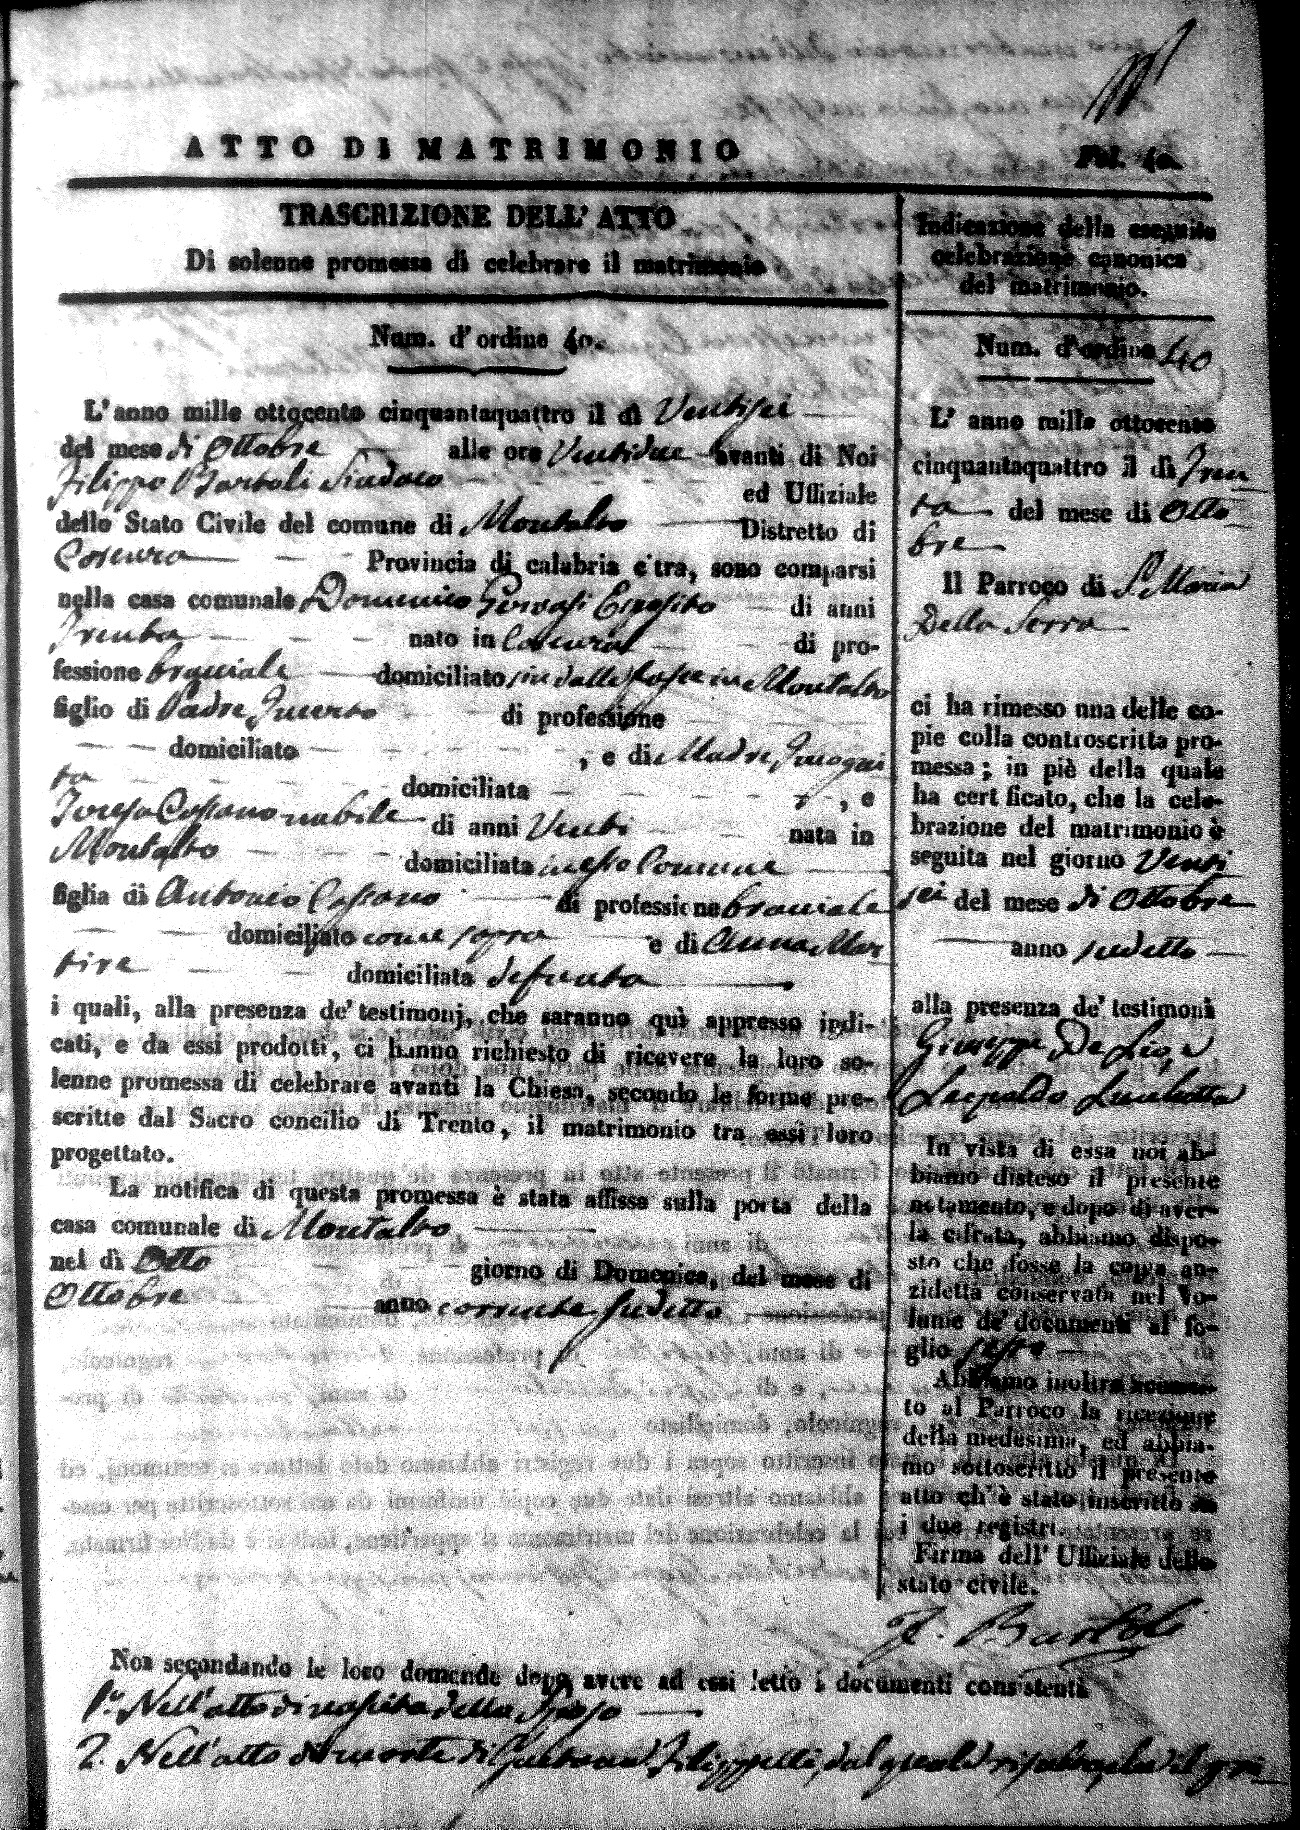 ATTO DI MATRIMONIO
Fol. 40.
TRASCRIZIONE DELL' ATTO
Di solenne promessa di celebrare il matrimonio
Num. d' ordine 40.
L' anno mille ottocento cinquantaquattro il dì Ventisei
del mese di Ottobre alle ore Ventidue avanti di Noi
Filippo Bartoli Sindaco ed Uffiziale
dello Stato Civile del comune di Montalto Distretto di
Cosenza Provincia di calabria citra, sono comparsi
nella casa comunale Domenico Gervasi Esposito di anni
Trenta nato in Cosenza di pro-
fessione bracciale domiciliato sin dalle fasce in Montalto
figlio di Padre Incerto di professione
domiciliato , e di Madre Incogni
ta domiciliata , e
Teresa Cassano nubile di anni Venti nata in
Montalto domiciliata in esso Comune
figlia di Antonio Cassano di professione bracciale
domiciliato come sopra e di Anna Mar
tire domiciliata defunta
i quali, alla presenza de' testimonj, che saranno quì appresso indi-
cati, e da essi prodotti, ci hanno richiesto di ricevere la loro so-
lenne promessa di celebrare avanti la Chiesa, secondo le forme pre-
scritte dal Sacro concilio di Trento, il matrimonio tra essi loro
progettato.
La notifica di questa promessa è stata affissa sulla porta della
casa comunale di Montalto
nel dì Otto giorno di Domenica, del mese di
Ottobre anno corrente sudetto
Indicazione della eseguita
celebrazione canonica
del matrimonio.
Num. d'ordine 40
L' anno mille ottocento
cinquantaquattro il dì Tren
ta del mese di Otto
bre
Il Parroco di S. Maria
Della Serra
ci ha rimesso una delle co-
pie colla controscritta pro-
messa; in piè della quale
ha certificato, che la cele-
brazione del matrimonio è
seguita nel giorno Venti
sei del mese di Ottobre
anno sudetto
alla presenza de' testimoni
Giuseppe De Lio, e
Leopoldo
In vista di essa noi ab-
biamo disteso il presente
notamento, e dopo di aver-
la cifrata, abbiamo dispo-
sto che fosse la copia an-
zidetta conservata nel Vo-
lume de' documenti al fo-
glio
Abbiamo inoltre accusa-
to al Parroco la ricezione
della medesima, ed abbia-
mo sottoscritto il presente
atto ch' è stato inscritto su
i due registri.
Firma dell' Uffiziale dello
stato civile.
F. Bartoli
Noi secondando le loro domande dopo avere ad essi letto i documenti consistenti
1.° Nell'atto di nascita dello Sposo
2. Nell'atto di morte di Filippelli, dal quale